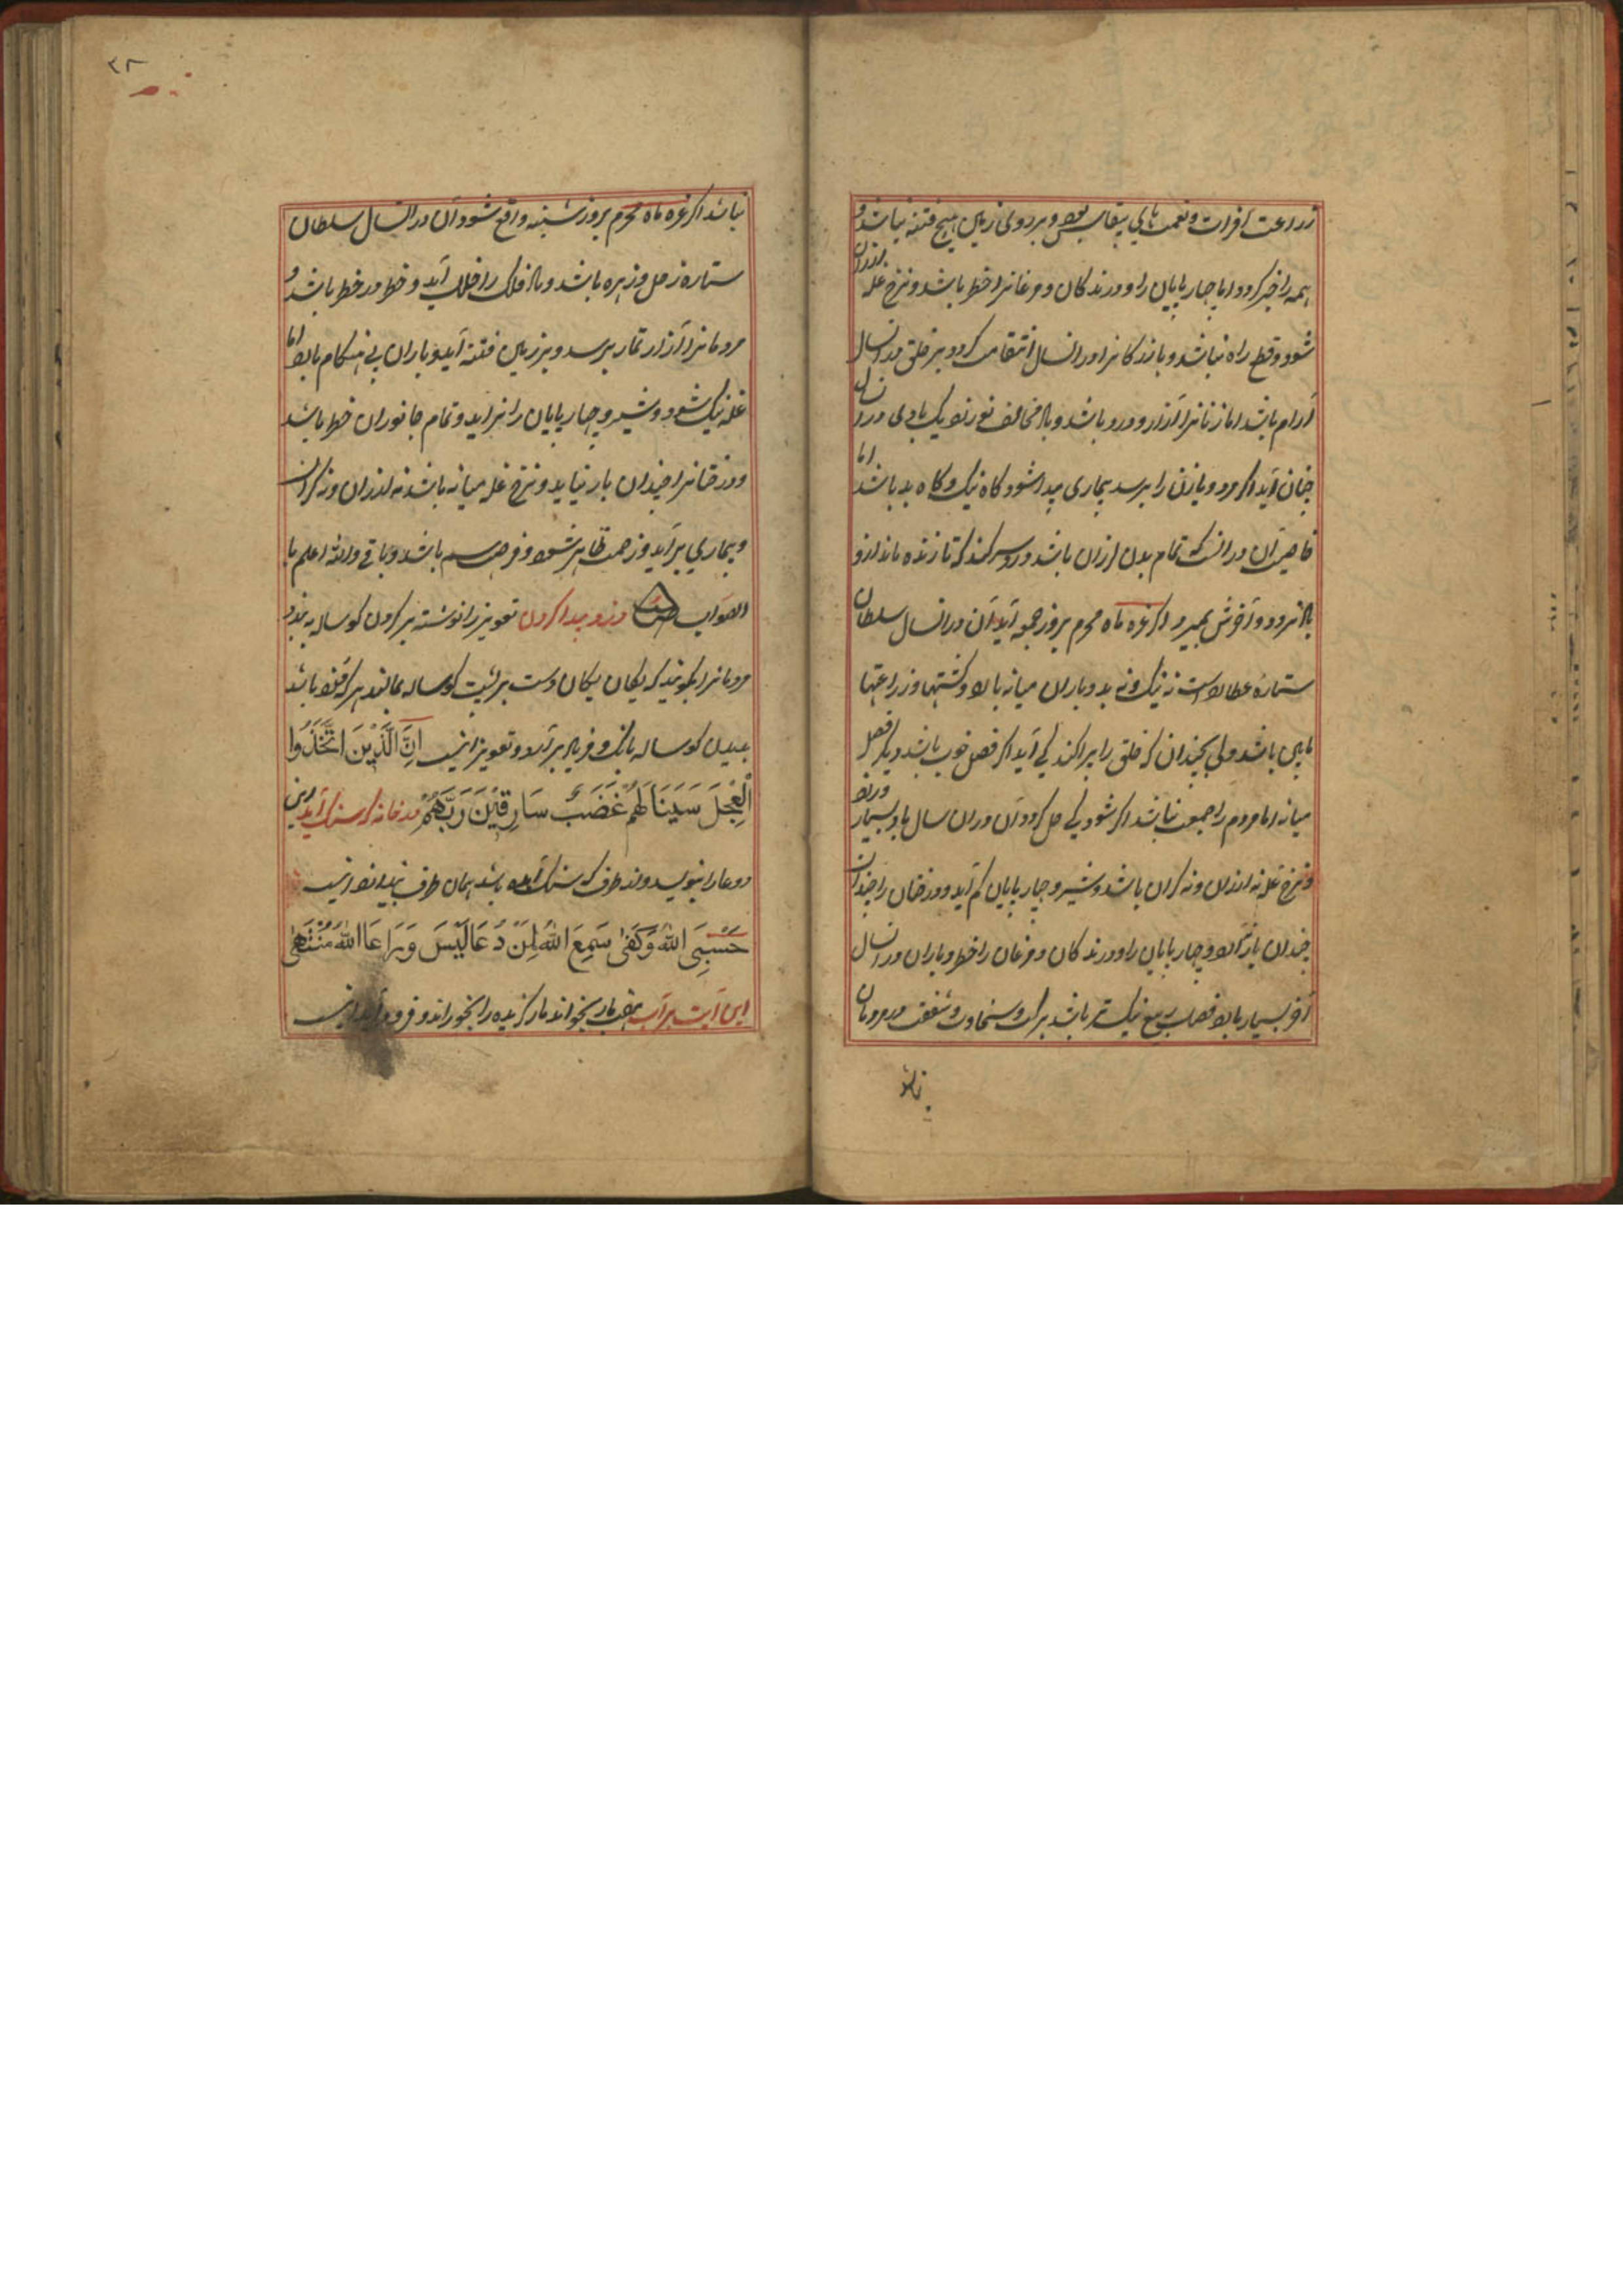 زراعت افرات و نعمت بای بیقاس بود و بر روی زمین هیچ فتنه نباشد و
همه را خیر کردد اما چهارپایان را و درندکان و مرغانرا خطر باشد و نرخ غله ارزان
شود و قطع راه نباشد و بازرکانرا در انسال کردد بر خلق در انسال
آرام باشد اما زنانرا آزار و درد باشد و باد مخالف بادی در انسال
چنان آید اکر مرد و یا زن را برسد بیماری پیدا شود کاه نیک و کاه بد باشد اما
خاصیت آن در آنست که تمام بدن لرزان باشد و درد سر کند که تا زنده ماند ازو
بالا نرود و آخرش بمیرد اکر غره ماه محرم بروز جمعه آید آن در انسال سلطان
ستاره عطارد است نه نیک و نه بد و باران میانه بارد و کشتها و زراعتها
باشد ولی نچندان که خلق را آید اکر فصل خوب باشد دیکر فصل
میانه اما مردم را جمعیت نباشد اکر شود یکی حل کردد آن در آن سال باد بسیار وزد
و نرخ غله نه ارزان و نه کران باشد و شیر و چهارپایان کم آید و درختان را چندان
چندان بار و چهارپایان را و درندکان و مرغان را خطر و باران در انسال
آخر بسیار بارد فصل ربیع نیک تر باشد برکت و سخاوت و شفقت در مردمان
نباشد
٢٨
نباشد اکر غره ماه محرم بروز شنبه واقع شود آن در انسال سلطان
ستاره زحل و زهره باشد و بالا فلک را خلل آید و خطر در خطر باشد و
مردمانرا آزار تمام برسد و بر زمین فتنه آید و باران بی هنکام بارد اما
غله نیک شود و شیر و چهارپایان را نیز آید و تمام جانوران خطر باشد
و درختانرا چندان بار نیاید و نرخ غله میانه باشد نه ارزان و نه کران
و بیماری بر آید و زحمت ظاهر شود و قرض هم باشد و باقی والله اعلم با
الصواب دزد پیدا کردن تعویز را نوشته بر کردن کوساله به بندد
مردمانرا بکویند که یکان یکان دست بر پشت کوساله بمالند هر که دزد باشد
کوساله بانک و فریاد بر آرد و تعویز اینست اِنَّ الَّذِینَ اتَّخَذُوا
الْعِجْلَ سَیَنَالَهُمْ غَضَبٌ سَارِقِینَ رَبَّهُمْ در خانه که سنک آید این
دعا را بنویسد و در طرف که سنک آمده باشد همان طرف بیندازد اینست
حَسْبِیَ اللهُ وَکَفَیٰ سَمِعَ اللهُ لِمَنْ دَعَا لَیْسَ وَرَاءَ اللهِ مُنْتَهَیٰ
این آیت بر آب هفت بار بخواند مار کزیده را بخوراند فرود آید اینست